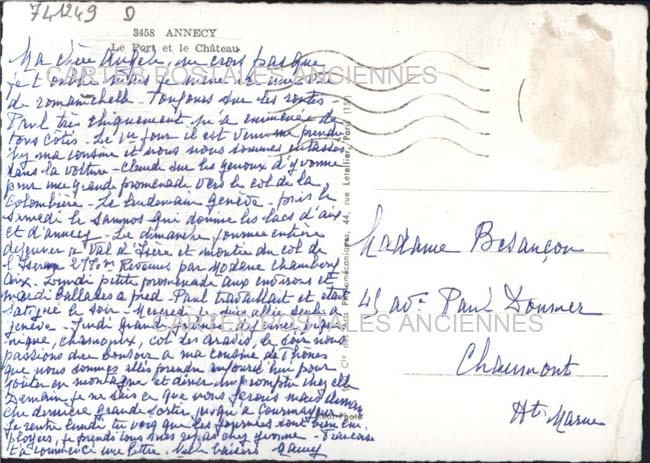 741249 D
3458 ANNECY
Le Port et le Château
Ma chère Angèle, ne crois pas que
je t'oublie mais je mène ici une vie
de romanichelle. Toujours sur les routes.
Paul très chiquement m'a emmenée de
tous côtés. Le jour il est venu me prendre
ma cousine et nous nous sommes entassés
dans la voiture - Claude sur les genoux d'Yvonne
pour une grande promenade vers le col de la
Colombière - Le lendemain Genève - puis le
samedi le Semnoz qui domine les lacs d'Aix
et d'Annecy - Le dimanche journée entière
déjeuner à Val d'Isère et montée du col de
l'Iseran 2770m Revenus par Modane Chambéry
Aix. Lundi petite promenade aux environs et
mardi ballades à pied. Paul travaillait et était
fatigué le soir - Mercredi je suis allée seule à
Genève - Jeudi grande
Chamonix, col des Aravis, le soir nous
passions dire bonsoir à ma cousine de Thônes
que nous sommes allés prendre aujourd'hui pour
goûter en montagne et dîner impromptu chez elle
Demain je ne sais ce que nous ferons mais dimanche
che dernière grande sortie jusqu'à Courmayeur
Je rentre lundi tu vois que les journées sont bien em
ployées, je prends tous mes repas chez Yvonne - Françoise
t'a commencé une lettre.
Madame Besançon
45 ave Paul Doumer
Chaumont
Hte Marne
Cie des Arts Photomécaniques, 44, rue Letellier, Paris (15
CARTES POSTALES ANCIENNES
CARTES POSTALES ANCIENNES